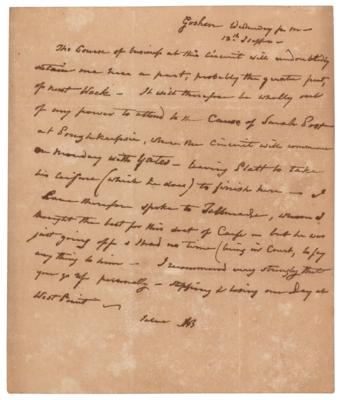 Goshen Wednesday p m —
12th Septr —
The Course of business at this Circuit will undoubtedly
detain me here a part, probably the greater part,
of next Week — It will therefore be wholly out
of my power to attend to the Cause of Sarah
at Poughkeepsie, where the Circuit will commence
on Monday with Yates — leaving Platt to take
his leisure (which he does) to finish here — I
have therefore spoke to Tallmadge, whom I
thought the best for this sort of Case — but he was
just going off & I had no time (being in Court) to say
any thing to him — I recommend very strongly that
you go up personally — stopping & losing one Day at
West Point —
AB